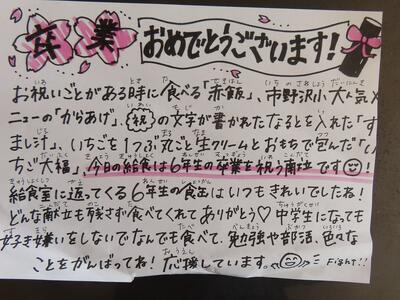 卒業おめでとうございます!
お祝いごとがある時に食べる「赤飯」、市野沢小大人気メ
ニューの「からあげ」、祝の文字が書かれたなるとを入れた「す
まし汁」、いちごを1つぶ丸ごと生クリームとおもちで包んだ「い
ちご大福」、今日の給食は6年生の卒業を祝う献立です!
給食室に返ってくる6年生の食缶はいつもきれいでしたね!
どんな献立も残さず食べてくれてありがとう♡中学生になっても
好き嫌いをしないでなんでも食べて、勉強や部活、色々な
ことをがんばってね!応援しています。Fight!!